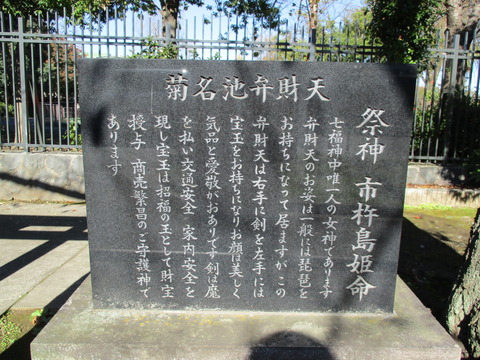 菊名池弁財天
祭神 市杵島姫命
七福神中唯一人の女神であります
弁財天のお姿は一般には琵琶を
お持ちになって居ますがこの
弁財天は右手に剣を左手には
宝玉をお持ちになりお顔は美しく
気品と愛敬がおありです 剣は魔
を払い交通安全 家内安全を
現し宝玉は招福の玉として財宝
授与 商売繁昌のご守護神で
あります